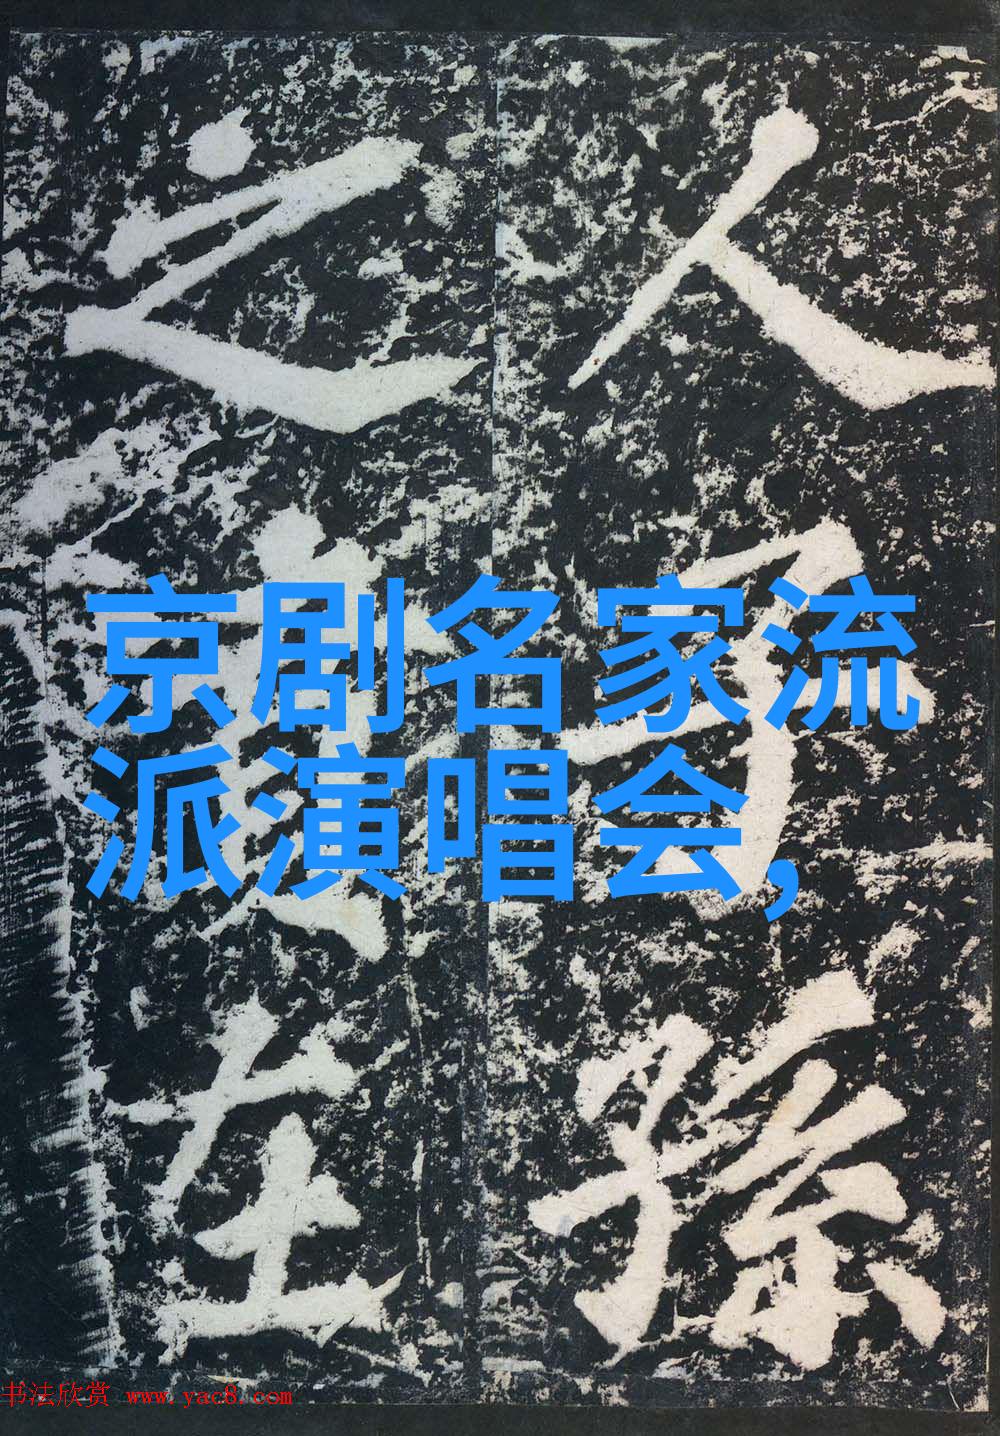 人子孫
之在
京剧名家流
派演唱会,
书法欣赏 www.yac8.com